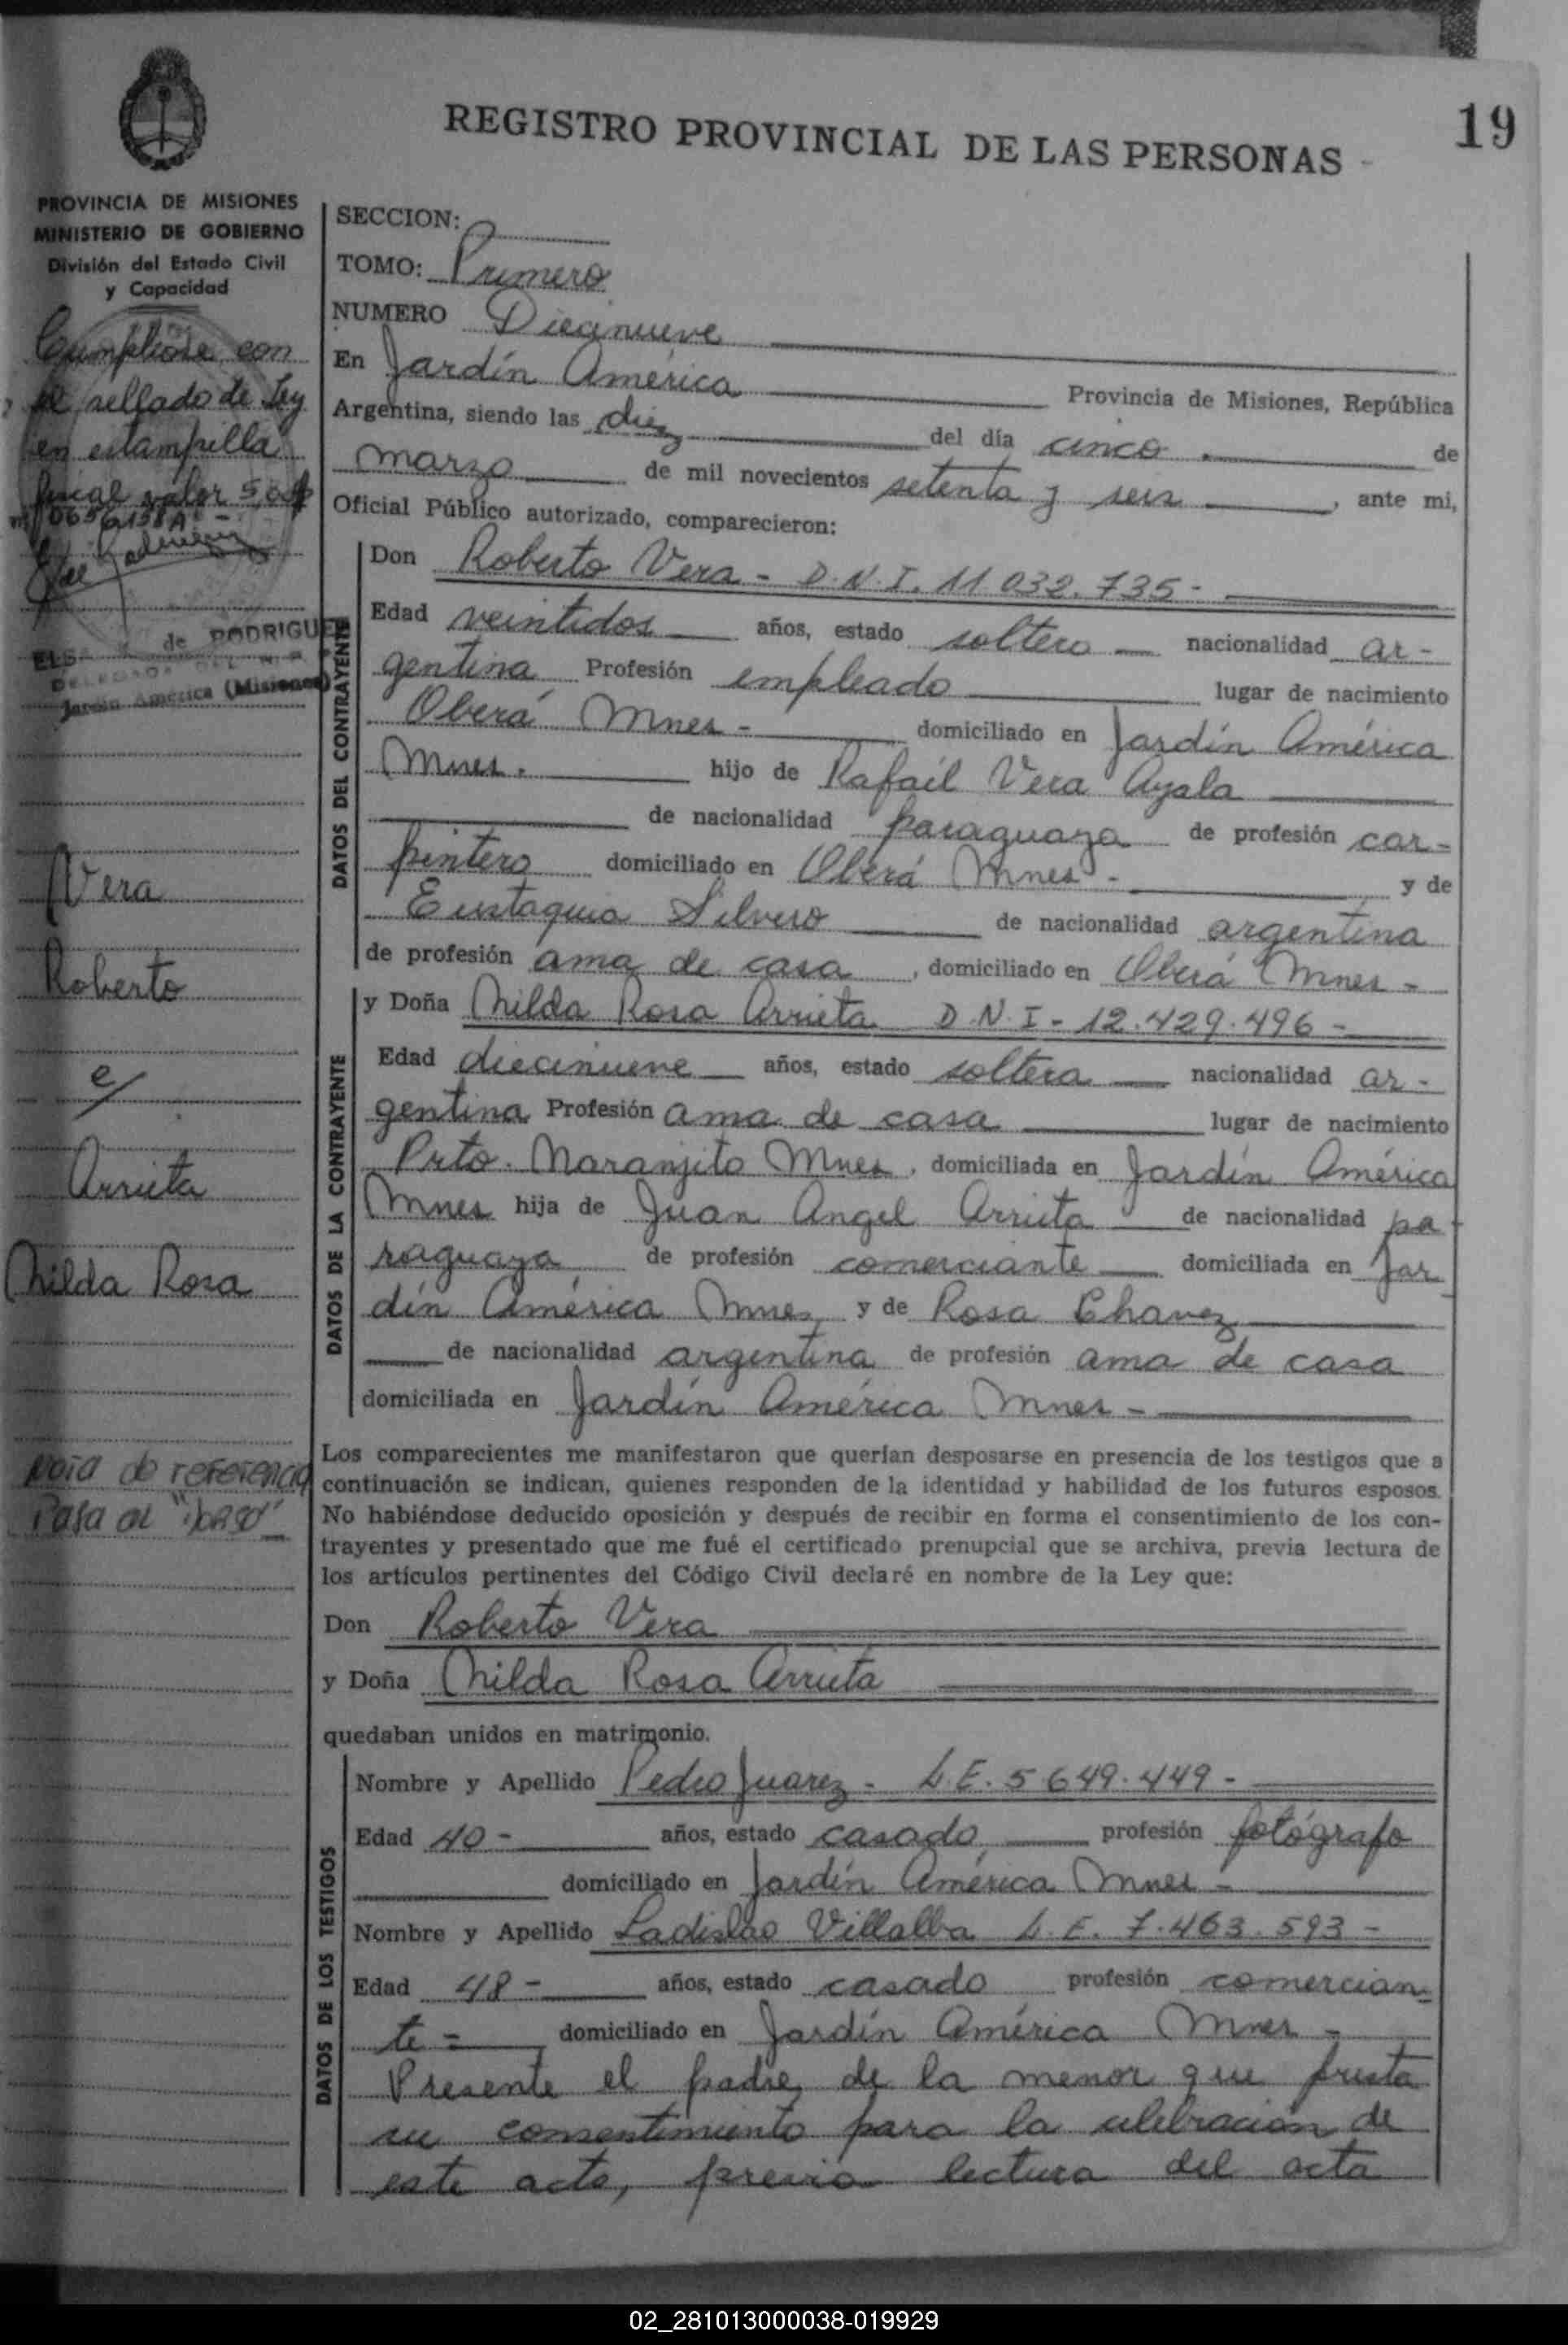 19
REGISTRO PROVINCIAL DE LAS PERSONAS
PROVINCIA DE MISIONES
MINISTERIO DE GOBIERNO
División del Estado Civil
y Capacidad
Cumpliose con
el sellado de Ley
en estampilla
fiscal valor 5,00
de RODRIGUEZ
Jardín América (Misiones)
Vera
Roberto
c/
Arrieta
Nilda Rosa
Nota de referencia
Pasa al "dorso"
SECCION:
TOMO: Primero
NUMERO Diecinueve
En Jardín América Provincia de Misiones, República
Argentina, siendo las diez del día cinco de
marzo de mil novecientos setenta y seis, ante mi,
Oficial Público autorizado, comparecieron:
DATOS DEL CONTRAYENTE
Don Roberto Vera - D.N.I. 11.032.735 -
Edad veintidos años, estado soltero nacionalidad ar-
gentina Profesión empleado lugar de nacimiento
Oberá Mnes - domiciliado en Jardín América
Mnes. hijo de Rafaél Vera Ayala
de nacionalidad paraguaya de profesión car-
pintero domiciliado en Oberá Mnes - y de
Eustaquia Silvero de nacionalidad argentina
de profesión ama de casa, domiciliado en Oberá Mnes -
DATOS DE LA CONTRAYENTE
y Doña Nilda Rosa Arrieta D.N.I - 12.429.496 -
Edad diecinueve años, estado soltera nacionalidad ar-
gentina Profesión ama de casa lugar de nacimiento
Prto. Naranjito Mnes, domiciliada en Jardín América
Mnes hija de Juan Angel Arrieta de nacionalidad pa-
raguaya de profesión comerciante domiciliada en Jar
dín América Mnes y de Rosa Chavez
de nacionalidad argentina de profesión ama de casa
domiciliada en Jardín América Mnes -
Los comparecientes me manifestaron que querían desposarse en presencia de los testigos que a
continuación se indican, quienes responden de la identidad y habilidad de los futuros esposos.
No habiéndose deducido oposición y después de recibir en forma el consentimiento de los con-
trayentes y presentado que me fué el certificado prenupcial que se archiva, previa lectura de
los artículos pertinentes del Código Civil declaré en nombre de la Ley que:
Don Roberto Vera
y Doña Nilda Rosa Arrieta
quedaban unidos en matrimonio.
DATOS DE LOS TESTIGOS
Nombre y Apellido Pedro Juarez - L.E. 5649.449 -
Edad 40 - años, estado casado, profesión fotógrafo
domiciliado en Jardín América Mnes -
Nombre y Apellido Ladislao Villalba L.E. 7.463.593 -
Edad 48 - años, estado casado profesión comercian-
te - domiciliado en Jardín América Mnes -
Presente el padre de la menor que presta
su consentimiento para la celebración de
este acto, previa lectura del acta
02_281013000038-019929